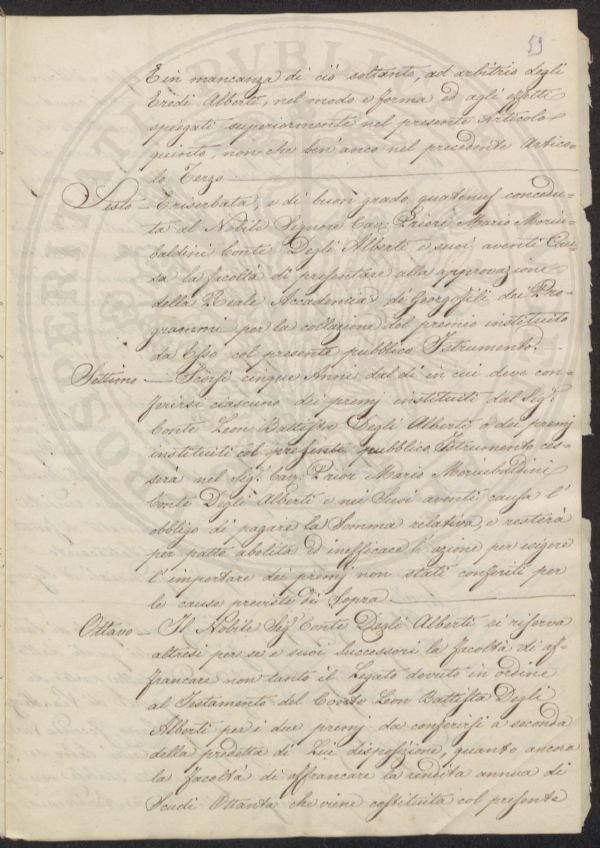 59
E in mancanza di ciò soltanto, ad arbitrio degli
Eredi Alberti, nel modo e forma ed agli effetti
spiegati superiormente nel presente Articolo
quinto, non che ben' anco nel precedente Artico-
lo Terzo
Sesto — È riserbata, e di buon grado quatenus concedu-
ta al Nobile Signore Cav. Priore Mario Moriu-
baldini Conte Degli Alberti e suoi aventi Cau-
sa la facoltà di presentare alla approvazione
della Reale Accademia di Georgofili dei Pro-
grammi per la collazione del premio instituito
da Esso col presente pubblico Istrumento. —
Settimo — Scorsi cinque Anni dal dì in cui deve con-
ferirsi ciascuno dei premj instituiti dal Sigr.
Conte Leon Battista Degli Alberti o dei premj
instituiti col presente pubblico Istrumento ces-
serà nel Sigr. Cav. Prior Mario Moriubaldini
Conte Degli Alberti e nei Suoi aventi causa l'
obbligo di pagare la Somma relativa, e resterà
per patto abolita ed inefficace l'azione per esigere
l'importare dei premj non stati conferiti per
le cause previste di Sopra.
Ottavo — Il Nobile Sigr. Conte Degli Alberti si riserva
altresì per se e suoi successori la facoltà di af-
francare non tanto il Legato dovuto in ordine
al Testamento del Conte Leon Battista Degli
Alberti per i due premj da conferirsi a seconda
della predetta di Lui disposizione, quanto ancora
la facoltà di affrancare la rendita annua di
Scudi Ottanta che viene costituita col presente
PROSPERITATI PUBLICAE